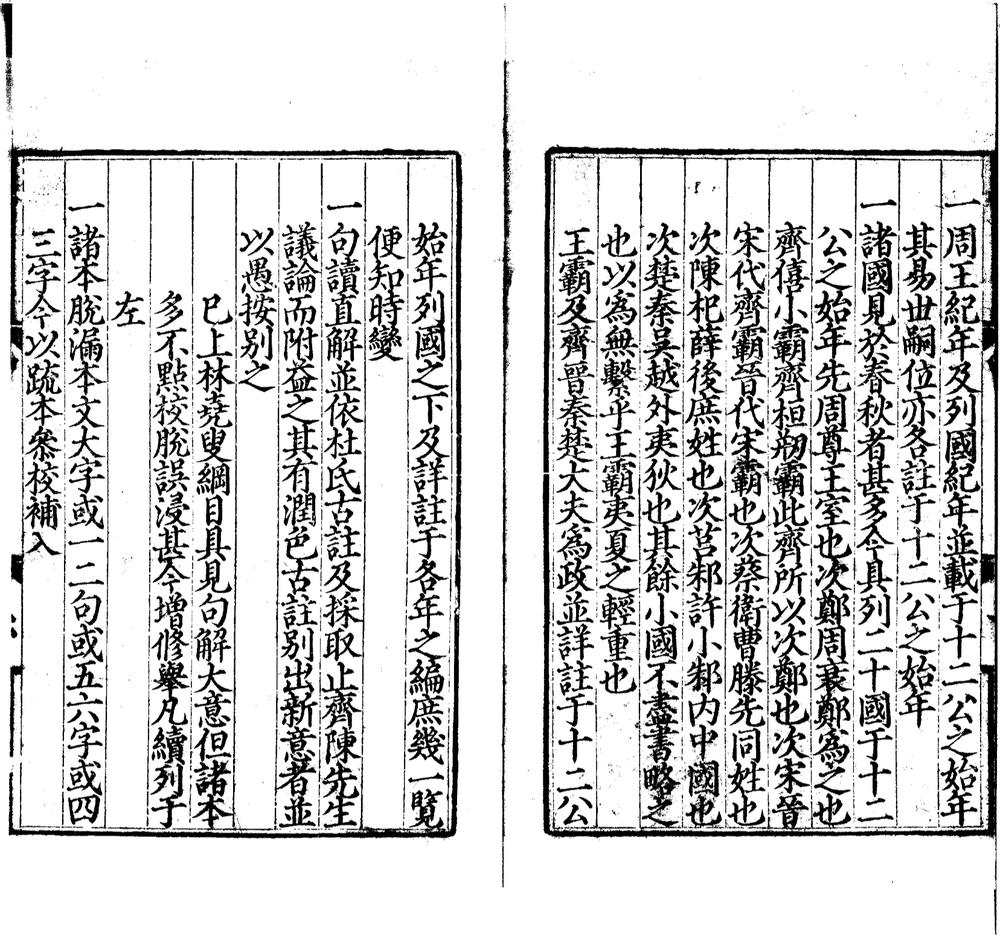 一周王紀年及列國紀年並載于十二公之始年
其易世嗣位亦各註于十二公之始年
一諸國見於春秋者甚多今具列二十國于十二
公之始年先周尊王室也次鄭周衰鄭為之也
齊僖小霸齊桓刱霸此齊所以次鄭也次宋晉
宋代齊霸晉代宋霸也次蔡衛曹滕先同姓也
次陳杞薛後庶姓也次莒邾許小邾內中國也
次楚秦吳越外夷狄也其餘小國不盡書略之
也以為無繫乎王霸夷夏之輕重也
王霸及齊晉秦楚大夫為政並詳註于十二公
始年列國之下及詳註于各年之編庶幾一覽
便知時變
一句讀直解並依杜氏古註及採取止齊陳先生
議論而附益之其有潤色古註別出新意者並
以愚按別之
巳上林堯叟綱目具見句解大意但諸本
多不點校脫誤浸甚今增修舉凡續列于
左
一諸本脫漏本文大字或一二句或五六字或四
三字今以疏本叅校補入